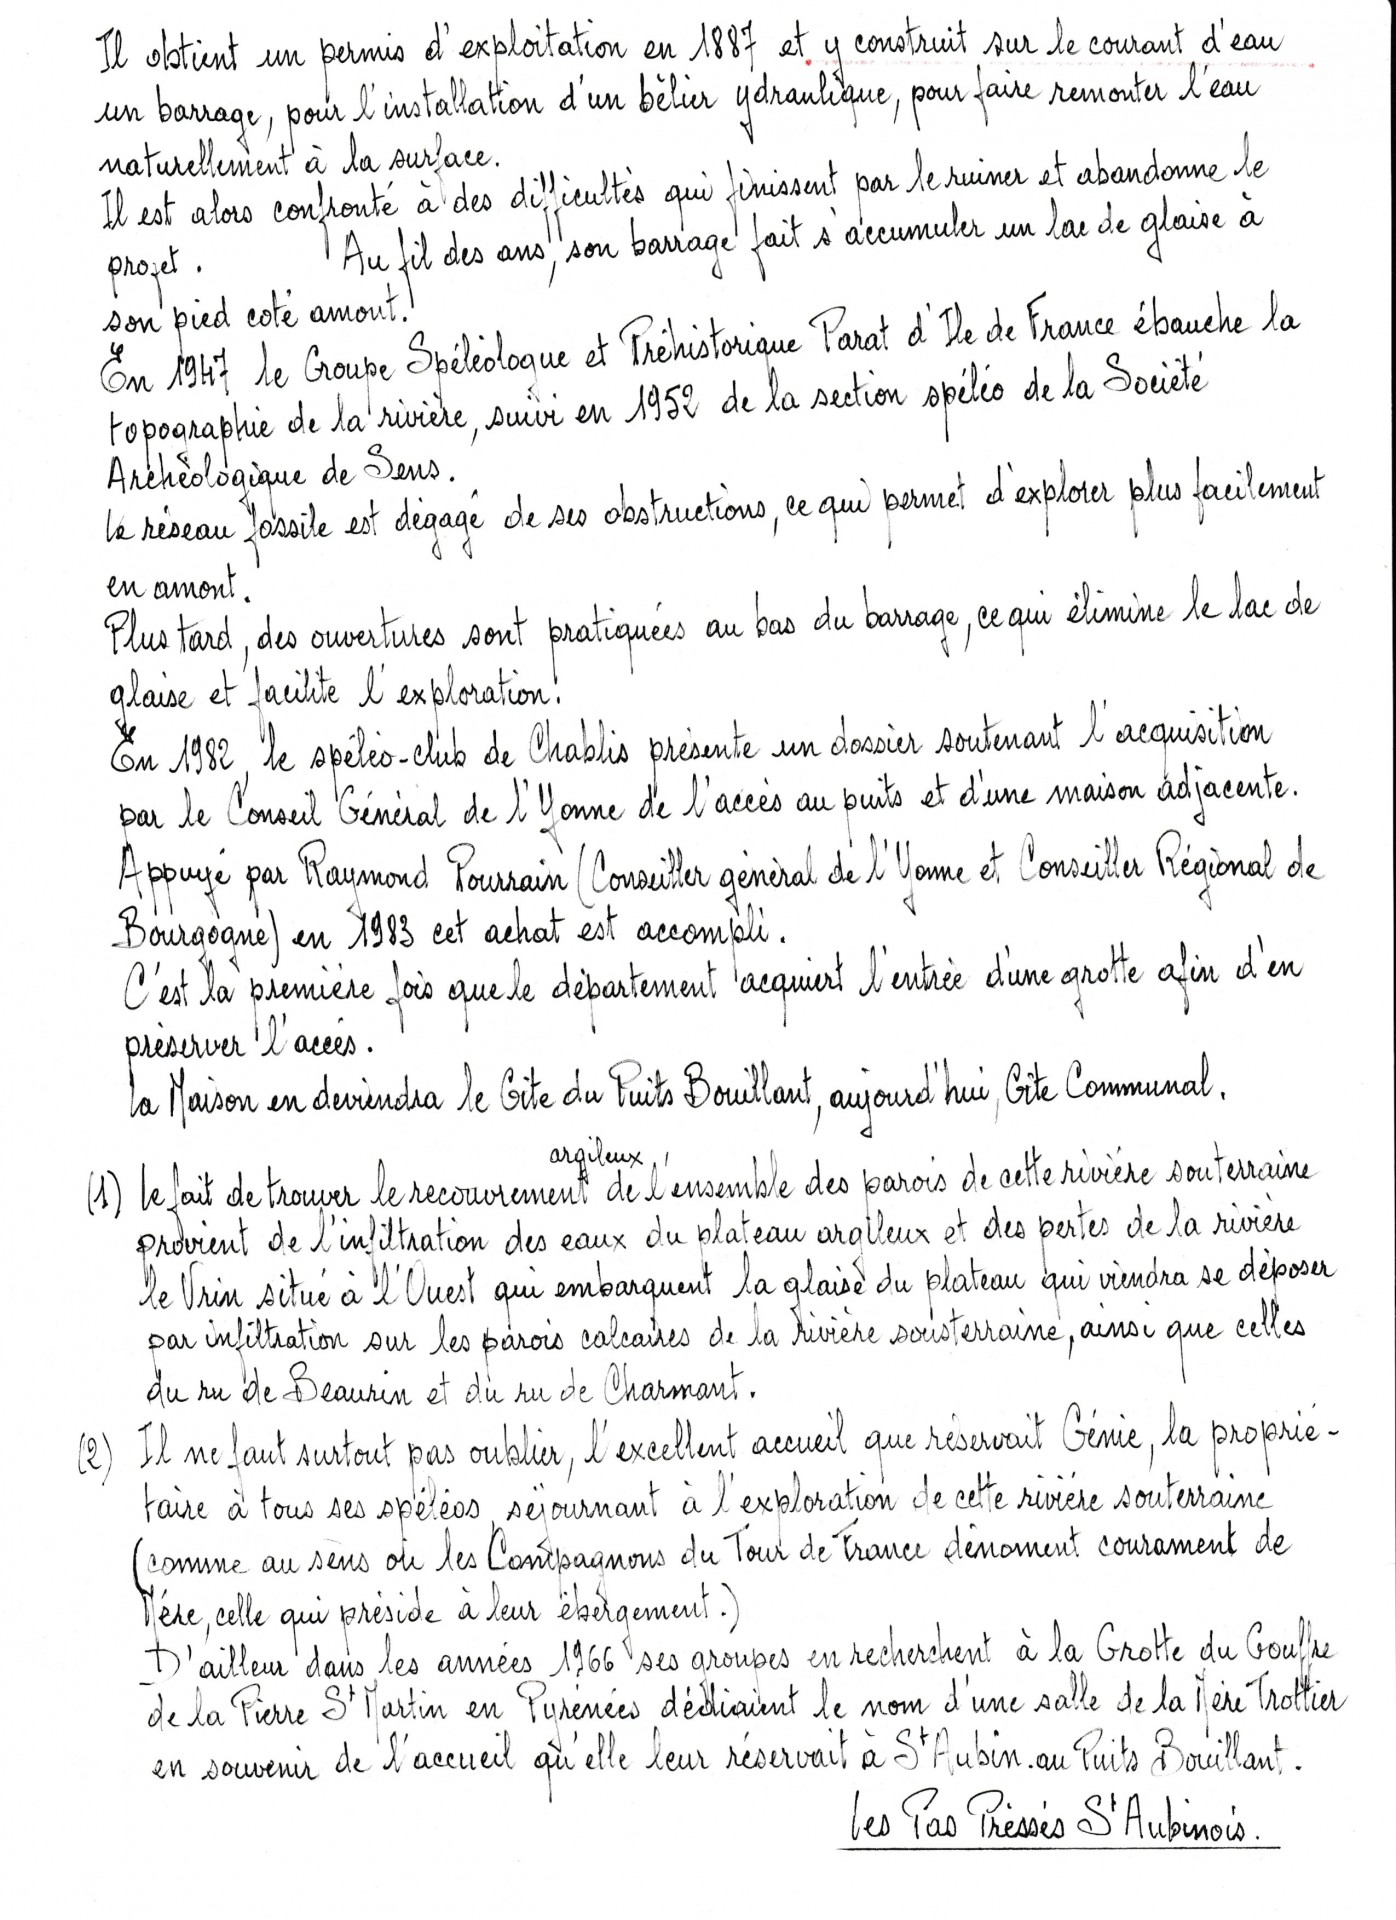 Il obtient un permis d'exploitation en 1887 et y construit sur le courant d'eau
un barrage, pour l'installation d'un bélier ydraulique, pour faire remonter l'eau
naturellement à la surface.
Il est alors confronté à des difficultés qui finissent par le ruiner et abandonne le
projet. Au fil des ans, son barrage fait s'accumuler un lac de glaise à
son pied coté amont.
En 1947 le Groupe Spéléologue et Préhistorique Parat d'Ile de France ébauche la
topographie de la rivière, suivi en 1952 de la section spéléo de la Société
Archéologique de Sens.
le réseau fossile est dégagé de ses obstructions, ce qui permet d'explorer plus facilement
en amont.
Plus tard, des ouvertures sont pratiquées au bas du barrage, ce qui élimine le lac de
glaise et facilite l'exploration.
En 1982, le spéléo-club de Chablis présente un dossier soutenant l'acquisition
par le Conseil Général de l'Yonne de l'accès au puits et d'une maison adjacente.
Appuyé par Raymond Pourrain (Conseiller général de l'Yonne et Conseiller Régional de
Bourgogne) en 1983 cet achat est accompli.
C'est la première fois que le département acquiert l'entrée d'une grotte afin d'en
préserver l'accés.
la Maison en deviendra le Gite du Puits Bouillant, aujourd'hui, Gîte Communal.
(1) le fait de trouver le recouvrement argileux de l'ensemble des parois de cette rivière souterraine
provient de l'infiltration des eaux du plateau argileux et des pertes de la rivière
le Vrin situé à l'Ouest qui embarquent la glaise du plateau qui viendra se déposer
par infiltration sur les parois calcaires de la rivière sousterraine, ainsi que celles
du ru de Beaurin et du ru de Charmant.
(2) Il ne faut surtout pas oublier, l'excellent accueil que réservait Génie, la proprié-
taire à tous ses spéléos, séjournant à l'exploration de cette rivière souterraine
(comme au sens où les Compagnons du Tour de France dénoment courament de
Mére, celle qui préside à leur ébergement.)
D'ailleur dans les années 1966 ses groupes en recherchent à la Grotte du Gouffre
de la Pierre St Martin en Pyrénées dédiaient le nom d'une salle de la Mère Trottier
en souvenir de l'accueil qu'elle leur réservait à St Aubin.au Puits Bouillant.
Les Pas Pressés St Aubinois.